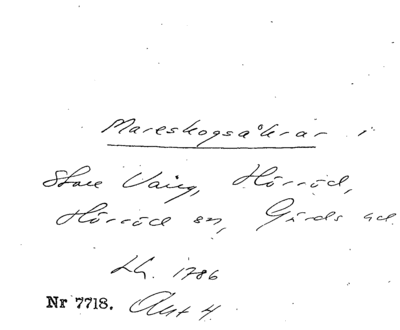 Mareskogsåkrar i
Store Vång, Hörröd,
Hörröd sn, Gärds hd.
Lh. 1786
Nr 7718. Akt 4.